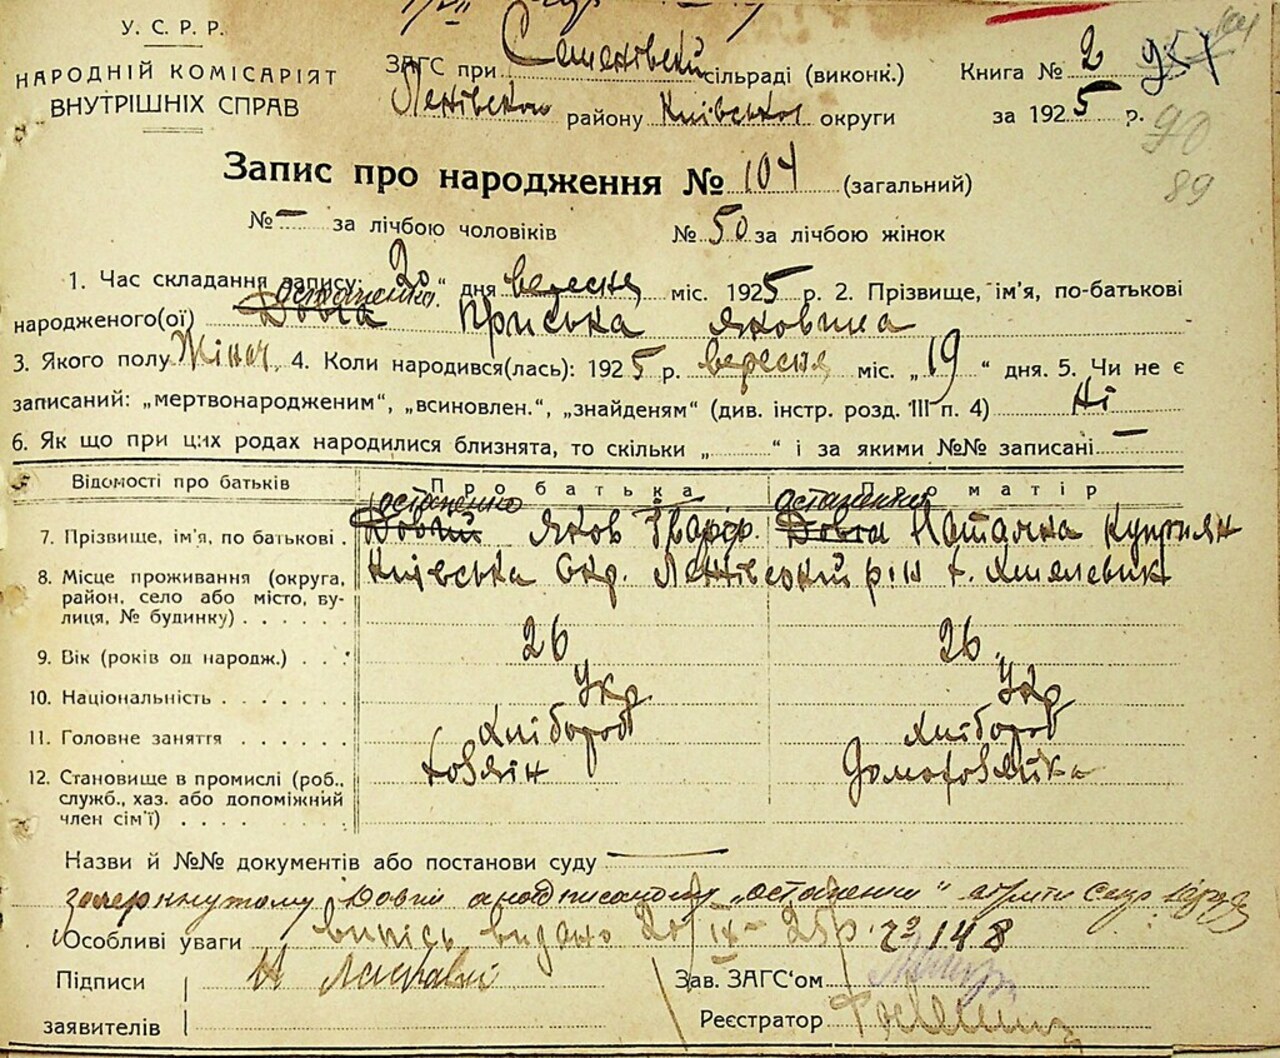 У. С. Р. Р.
НАРОДНІЙ КОМІСАРІЯТ
ВНУТРІШНІХ СПРАВ
ЗАГС при Семенівській сільраді (виконк.)
району Київської округи
Книга № 2
за 1925 р.
90
89
Запис про народження № 104 (загальний)
№ — за лічбою чоловіків № 50 за лічбою жінок
1. Час складання запису: 20 “ дня вересня міс. 1925 р. 2. Прізвище, ім'я, по-батькові
остапенко
народженого(ої) Довга Приська Яковина
3. Якого полу Жіноч. 4. Коли народився(лась): 1925 р. вересня міс. „ 19 “ дня. 5. Чи не є
записаний: „мертвонародженим“, „всиновлен.“, „знайденям“ (див. інстр. розд. III п. 4) Ні
6. Як що при цих родах народилися близнята, то скільки „ “ і за якими №№ записані —
Відомості про батьків Про батька Про матір
остапенко остапенко
7. Прізвище, ім'я, по батькові . Довгий Яков Довга Наталка Куприян
8. Місце проживання (округа, район, село або місто, вулиця, № будинку) Київська Окр.
9. Вік (років од народж.) 26 26
10. Національність Укр Укр
11. Головне заняття Хлібороб Хлібороб
12. Становище в промислі (роб., служб., хаз. або допоміжний член сім'ї) Хазяїн Домохазяйка
Назви й №№ документів або постанови суду —
зачеркнутому Довгий а надписаному „остапенко“
Особливі уваги випись видано 20/IX – 25 р. № 148
Підписи
заявителів
Зав. ЗАГС'ом
Реєстратор